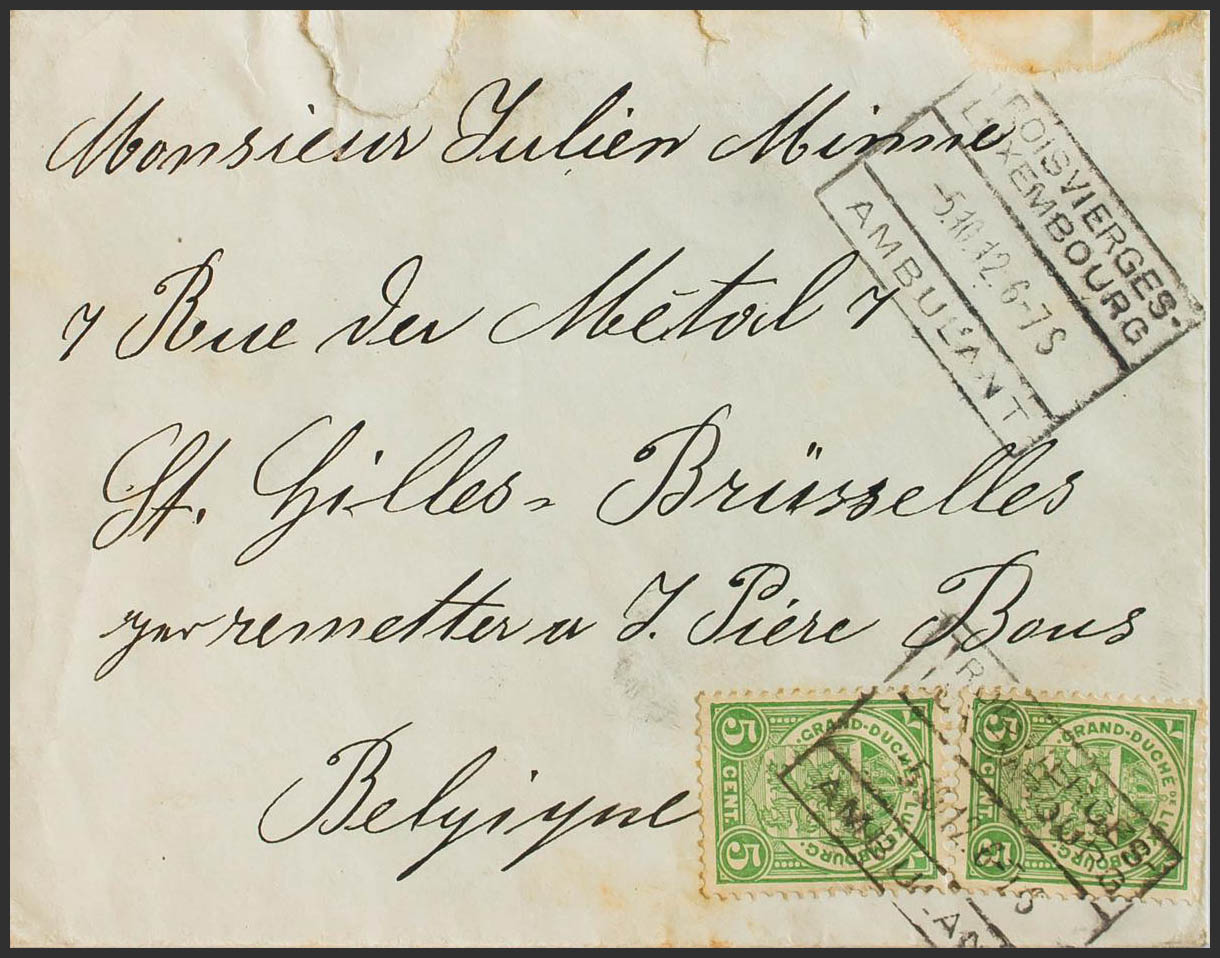 Monsieur Julien Minne
7 Rue der Métal 7
St. Gilles - Brüsselles
remetter a J. Piére Bous
Belgique
TROISVIERGES-
LUXEMBOURG
-5.10.12.6-7S
AMBULANT
5 CENT 5
GRAND-DUCHÉ DE LUXEMBOURG
5 CENT 5
GRAND-DUCHÉ DE LUXEMBOURG
AMBULANT